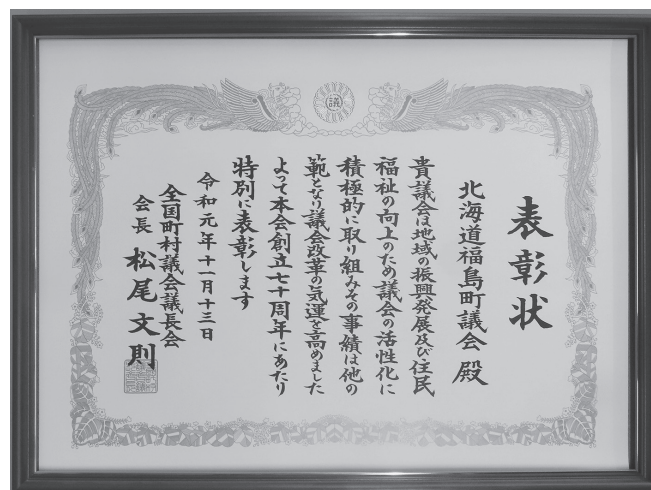 議
表彰状
北海道福島町議会殿
貴議会は地域の振興発展及び住民
福祉の向上のため議会の活性化に
積極的に取り組みその事績は他の
範となり議会改革の気運を高めました
よって本会創立七十周年にあたり
特別に表彰します
令和元年十一月十三日
全国町村議会議長会
会長 松尾文則